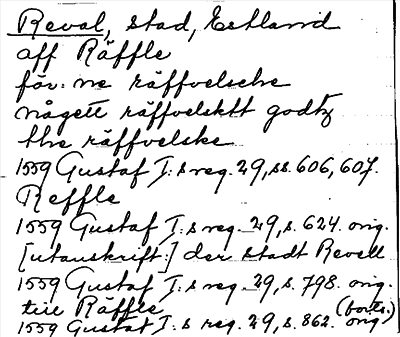 Reval, stad, Estland
aff Räffle
för: ne räffvelsche
någett räffvelsktt godtz
the räffvelske
1559 Gustaf I:s reg. 29, ss. 606, 607.
Reffle
1559 Gustaf I:s reg. 29, s. 624. orig.
[utanskrift:] der stadt Revell
1559 Gustaf I:s reg. 29, s. 798. orig.
till Räffle (forts.)
1559 Gustaf I:s reg. 29, s. 862. orig